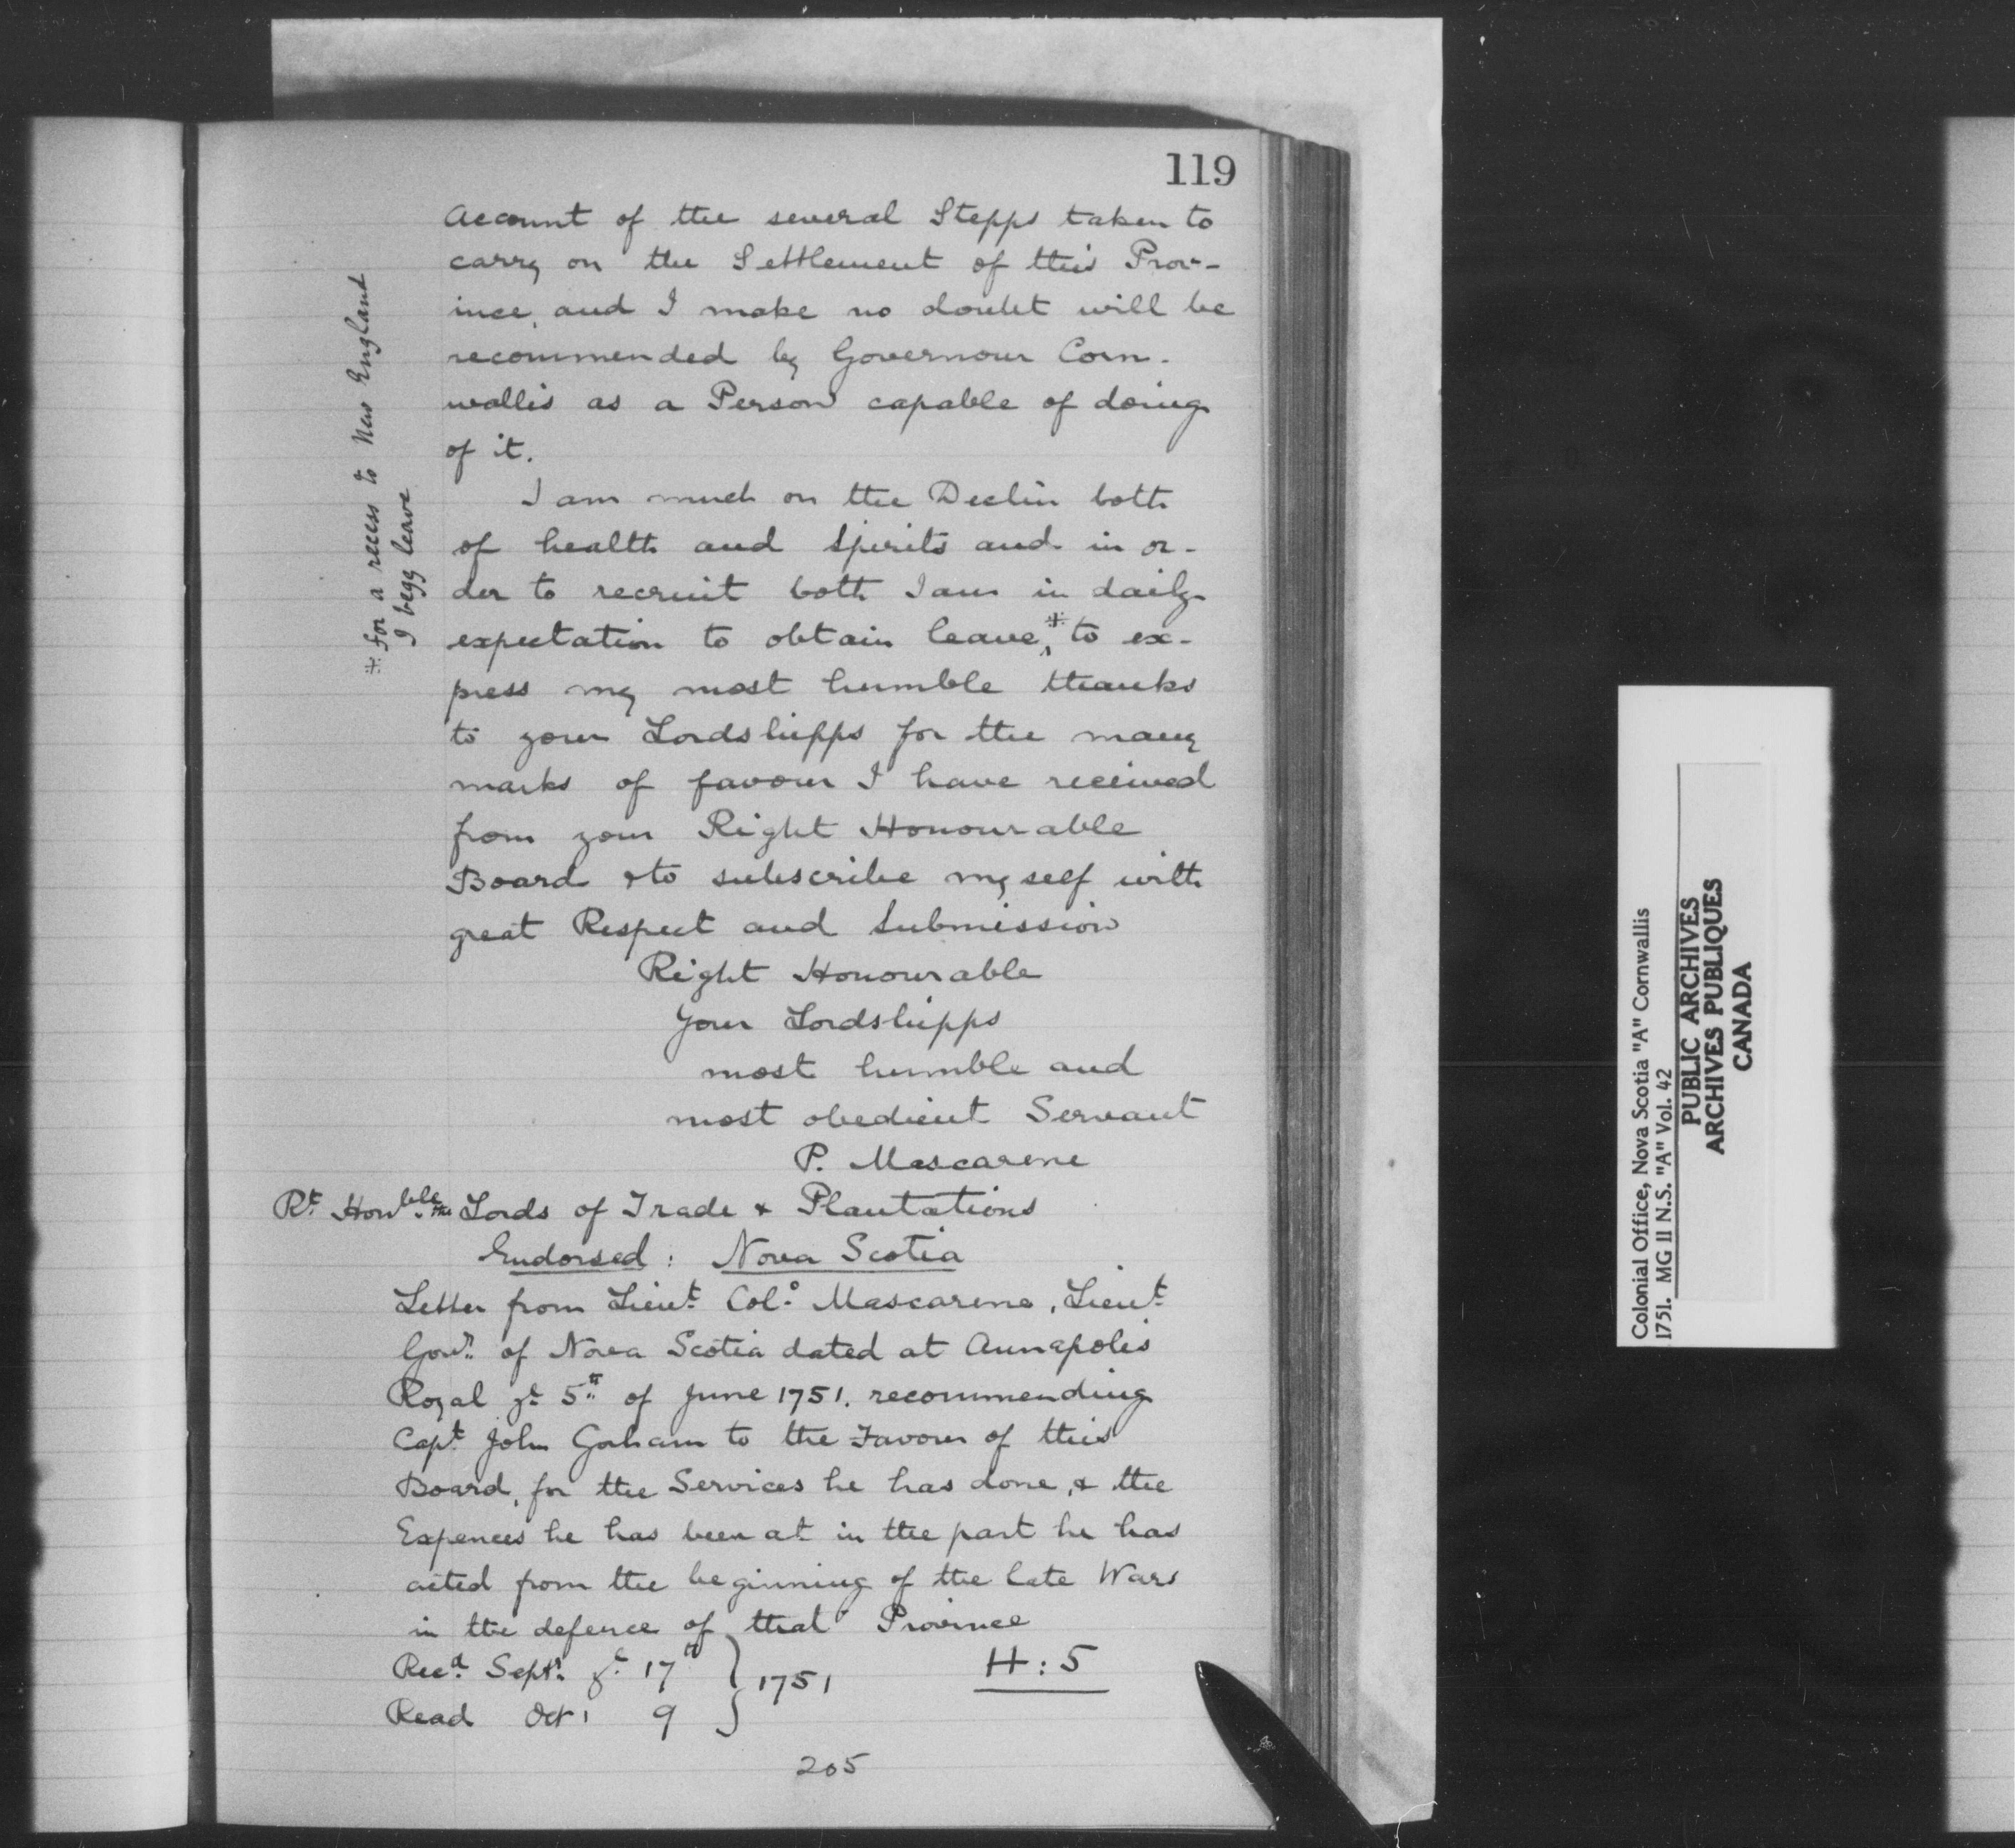 119
Account of the several Stepps taken to
carry on the Settlement of this Prov-
ince, and I make no doubt will be
recommended by Governour Corn-
wallis as a Person capable of doing
of it.
I am much on the Declin both
of health and Spirits and in or-
der to recruit both I am in daily
expectation to obtain leave,* to ex-
press my most humble thanks
to your Lordshipps for the many
marks of favour I have received
from your Right Honourable
Board & to subscribe myself with
great Respect and Submission
Right Honourable
Your Lordshipps
most humble and
most obedient Servant
P. Mascarene
* for a recess to New England
I begg leave
Rt. Honble. the Lords of Trade & Plantations
Endorsed: Nova Scotia
Letter from Lieut. Colo. Mascarene, Lieut.
Govr. of Nova Scotia dated at Annapolis
Royal ye 5th of June 1751. recommending
Capt. John Gorham to the Favour of this
Board, for the Services he has done, & the
Expences he has been at in the part he has
acted from the beginning of the late Wars
in the defence of that Province
Recd. Septr. ye 17th } 1751
Read Octr 9
H: 5
205
Colonial Office, Nova Scotia "A" Cornwallis
1751. MG 11 N.S. "A" Vol. 42
PUBLIC ARCHIVES
ARCHIVES PUBLIQUES
CANADA